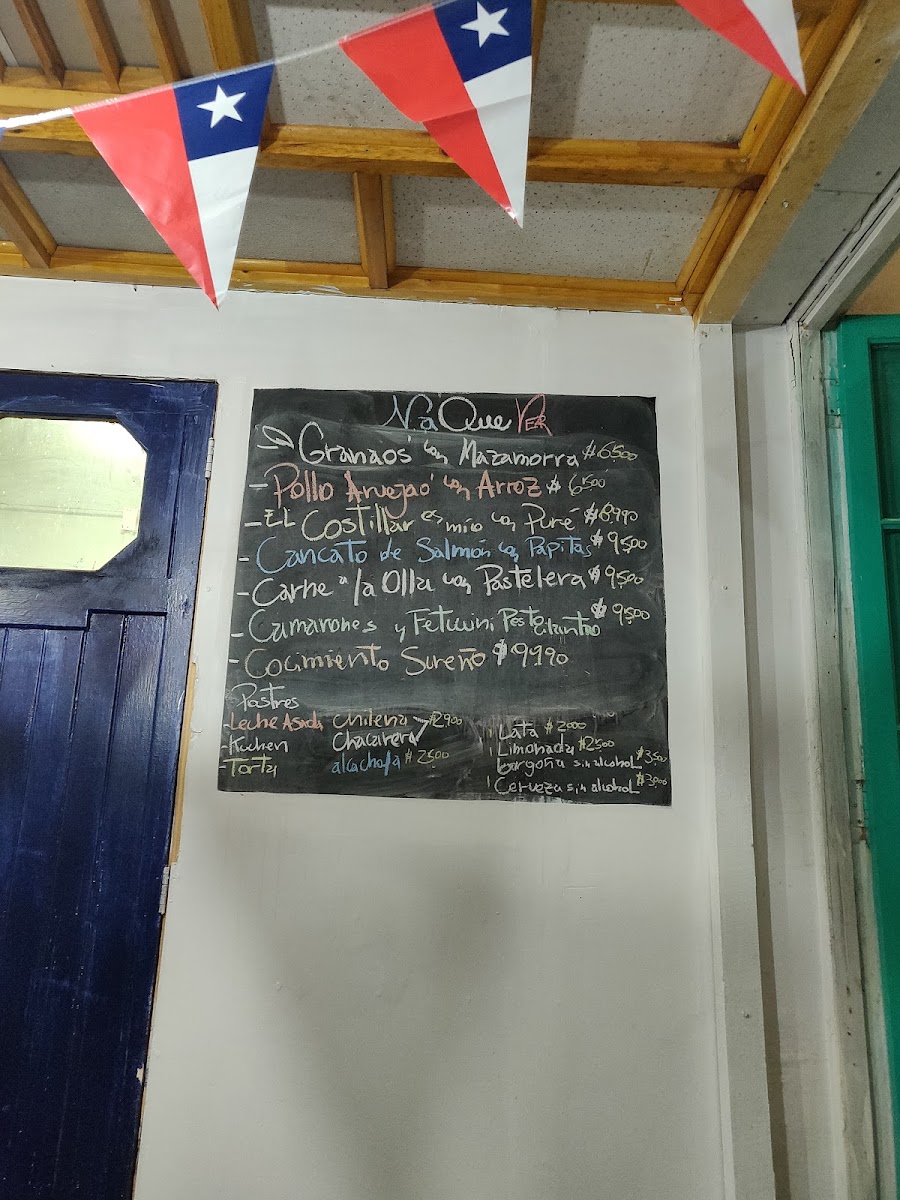 Na Que Ver
Granaos' con Mazamorra $6500
- Pollo Arvejao' con Arroz $6500
- EL Costillar es mio con Puré $8,990
- Cancato de Salmón con Papitas $9,500
- Carne a la Olla con Pastelera $9,500
- Camarones y Fetuccini Pesto cilantro $9,500
- Cocimiento Sureño $9990
Postres
- Leche Asada
- Kuchen
- Torta
Chilena $2,900
Chacarera
alcachofa $2,500
Lata $2000
Limonada $2500
borgoña sin alcohol $3,500
Cerveza sin alcohol $3,000